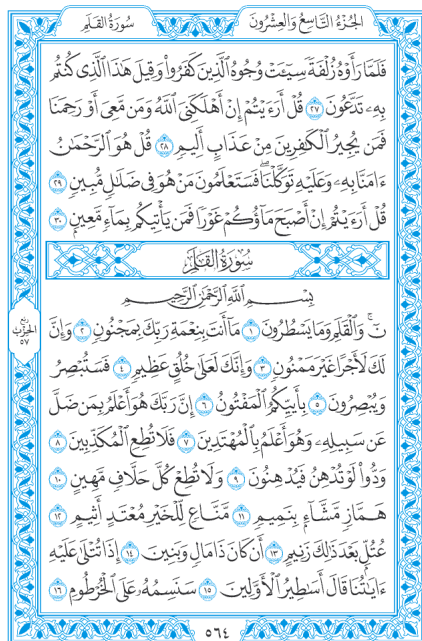 سُورَةُ القَلَمِ
الجُزْءُ التَّاسِعُ وَالعِشْرُونَ
فَلَمَّا رَأَوْهُ زُلْفَةً سِيٓـَٔتْ وُجُوهُ ٱلَّذِينَ كَفَرُواْ وَقِيلَ هَٰذَا ٱلَّذِى كُنتُم
بِهِۦ تَدَّعُونَ ٢٧ قُلْ أَرَءَيْتُمْ إِنْ أَهْلَكَنِىَ ٱللَّهُ وَمَن مَّعِىَ أَوْ رَحِمَنَا
فَمَن يُجِيرُ ٱلْكَٰفِرِينَ مِنْ عَذَابٍ أَلِيمٍ ٢٨ قُلْ هُوَ ٱلرَّحْمَٰنُ
ءَامَنَّا بِهِۦ وَعَلَيْهِ تَوَكَّلْنَاۖ فَسَتَعْلَمُونَ مَنْ هُوَ فِى ضَلَٰلٍ مُّبِينٍ ٢٩
قُلْ أَرَءَيْتُمْ إِنْ أَصْبَحَ مَآؤُكُمْ غَوْرًا فَمَن يَأْتِيكُم بِمَآءٍ مَّعِينٍۭ ٣٠
سُورَةُ القَلَمِ
بِسْمِ ٱللَّهِ ٱلرَّحْمَٰنِ ٱلرَّحِيمِ
نٓۚ وَٱلْقَلَمِ وَمَا يَسْطُرُونَ ١ مَآ أَنتَ بِنِعْمَةِ رَبِّكَ بِمَجْنُونٍ ٢ وَإِنَّ
لَكَ لَأَجْرًا غَيْرَ مَمْنُونٍ ٣ وَإِنَّكَ لَعَلَىٰ خُلُقٍ عَظِيمٍ ٤ فَسَتُبْصِرُ
وَيُبْصِرُونَ ٥ بِأَييِّكُمُ ٱلْمَفْتُونُ ٦ إِنَّ رَبَّكَ هُوَ أَعْلَمُ بِمَن ضَلَّ
عَن سَبِيلِهِۦ وَهُوَ أَعْلَمُ بِٱلْمُهْتَدِينَ ٧ فَلَا تُطِعِ ٱلْمُكَذِّبِينَ ٨
وَدُّواْ لَوْ تُدْهِنُ فَيُدْهِنُونَ ٩ وَلَا تُطِعْ كُلَّ حَلَّافٍ مَّهِينٍ ١٠
هَمَّازٍ مَّشَّآءٍۭ بِنَمِيمٍ ١١ مَّنَّاعٍ لِّلْخَيْرِ مُعْتَدٍ أَثِيمٍ ١٢
عُتُلٍّۭ بَعْدَ ذَٰلِكَ زَنِيمٍ ١٣ أَن كَانَ ذَا مَالٍ وَبَنِينَ ١٤ إِذَا تُتْلَىٰ عَلَيْهِ
ءَايَٰتُنَا قَالَ أَسَٰطِيرُ ٱلْأَوَّلِينَ ١٥ سَنَسِمُهُۥ عَلَى ٱلْخُرْطُومِ ١٦
ربع
الحزب
٥٧
٥٦٤